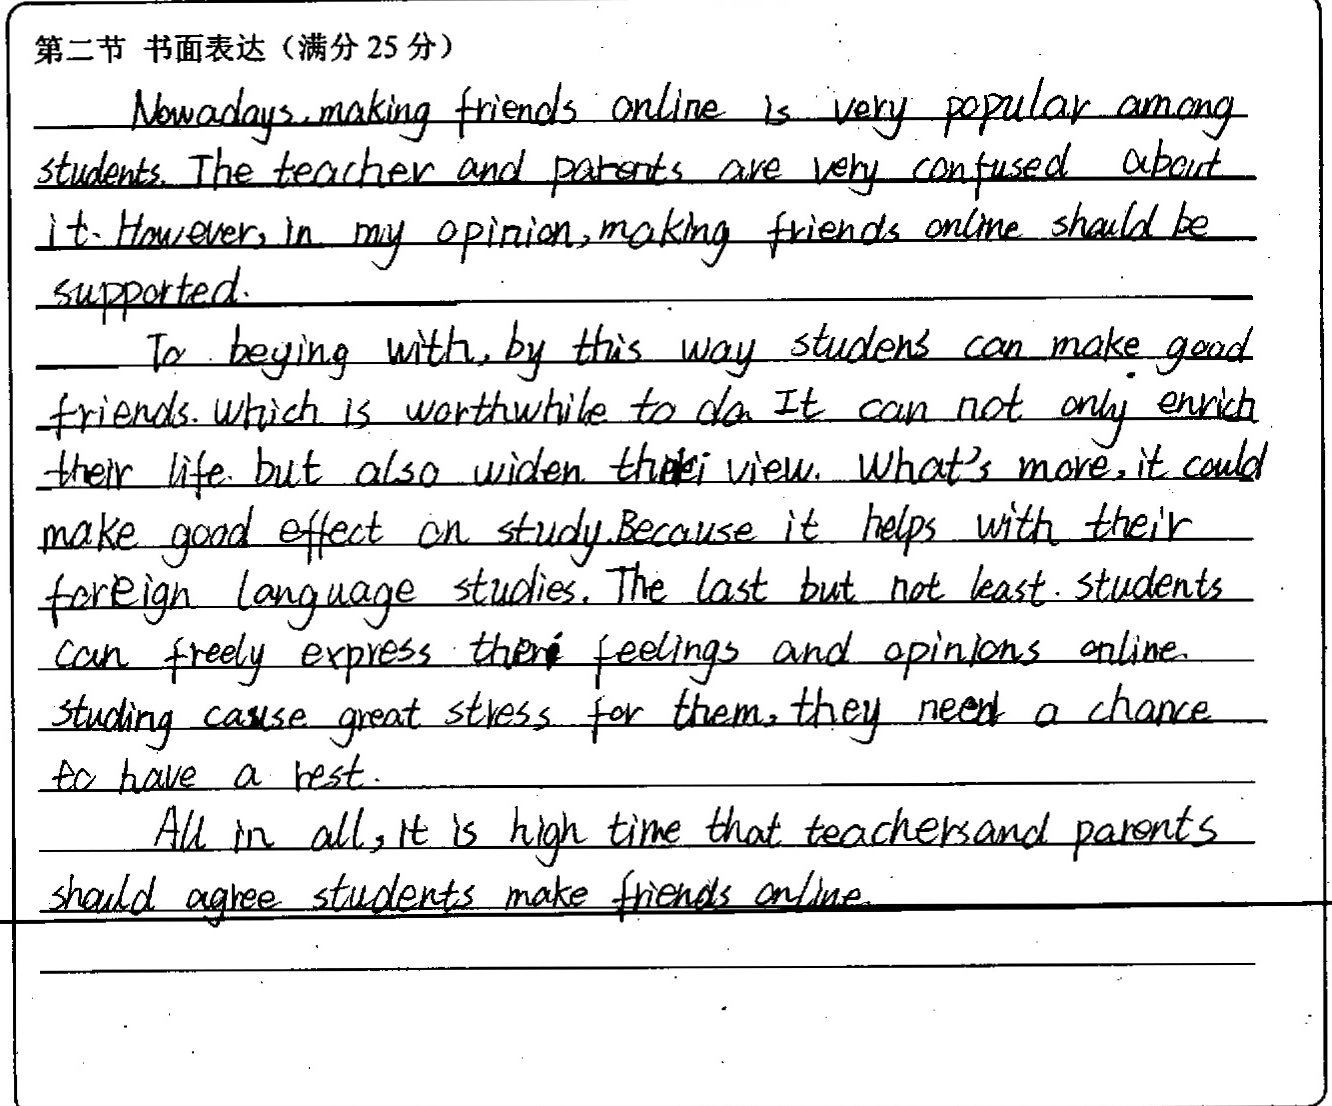 第二节 书面表达（满分 25 分）
Nowadays, making friends online is very popular among
students. The teacher and parents are very confused about
it. However, in my opinion, making friends online should be
supported.
To beging with, by this way studens can make good
friends. which is worthwhile to do. It can not only enrich
their life. but also widen view. What's more, it could
make good effect on study. Because it helps with their
foreign language studies. The last but not least. students
can freely express their feelings and opinions online.
studing cause great stress for them, they need a chance
to have a rest.
All in all, it is high time that teachers and parents
should agree students make friends online.